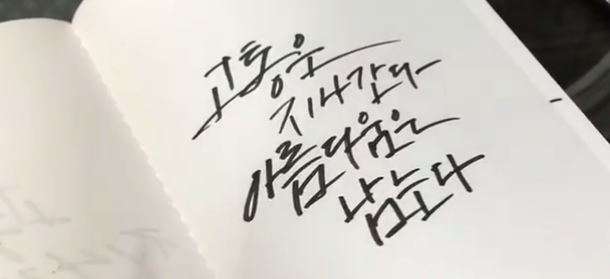 고통은
지나간다
아름다움은
남는다